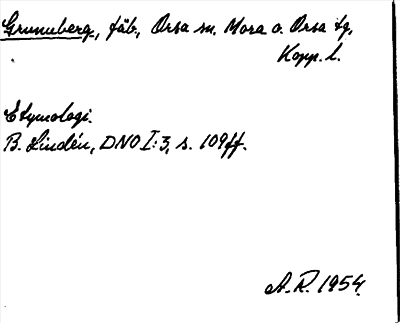 Grunuberg, fäb., Orsa sn. Mora o. Orsa tg,
Kopp. l.
Etymologi.
B. Lindén, DNO I:3, s. 109ff.
A. R. 1954.